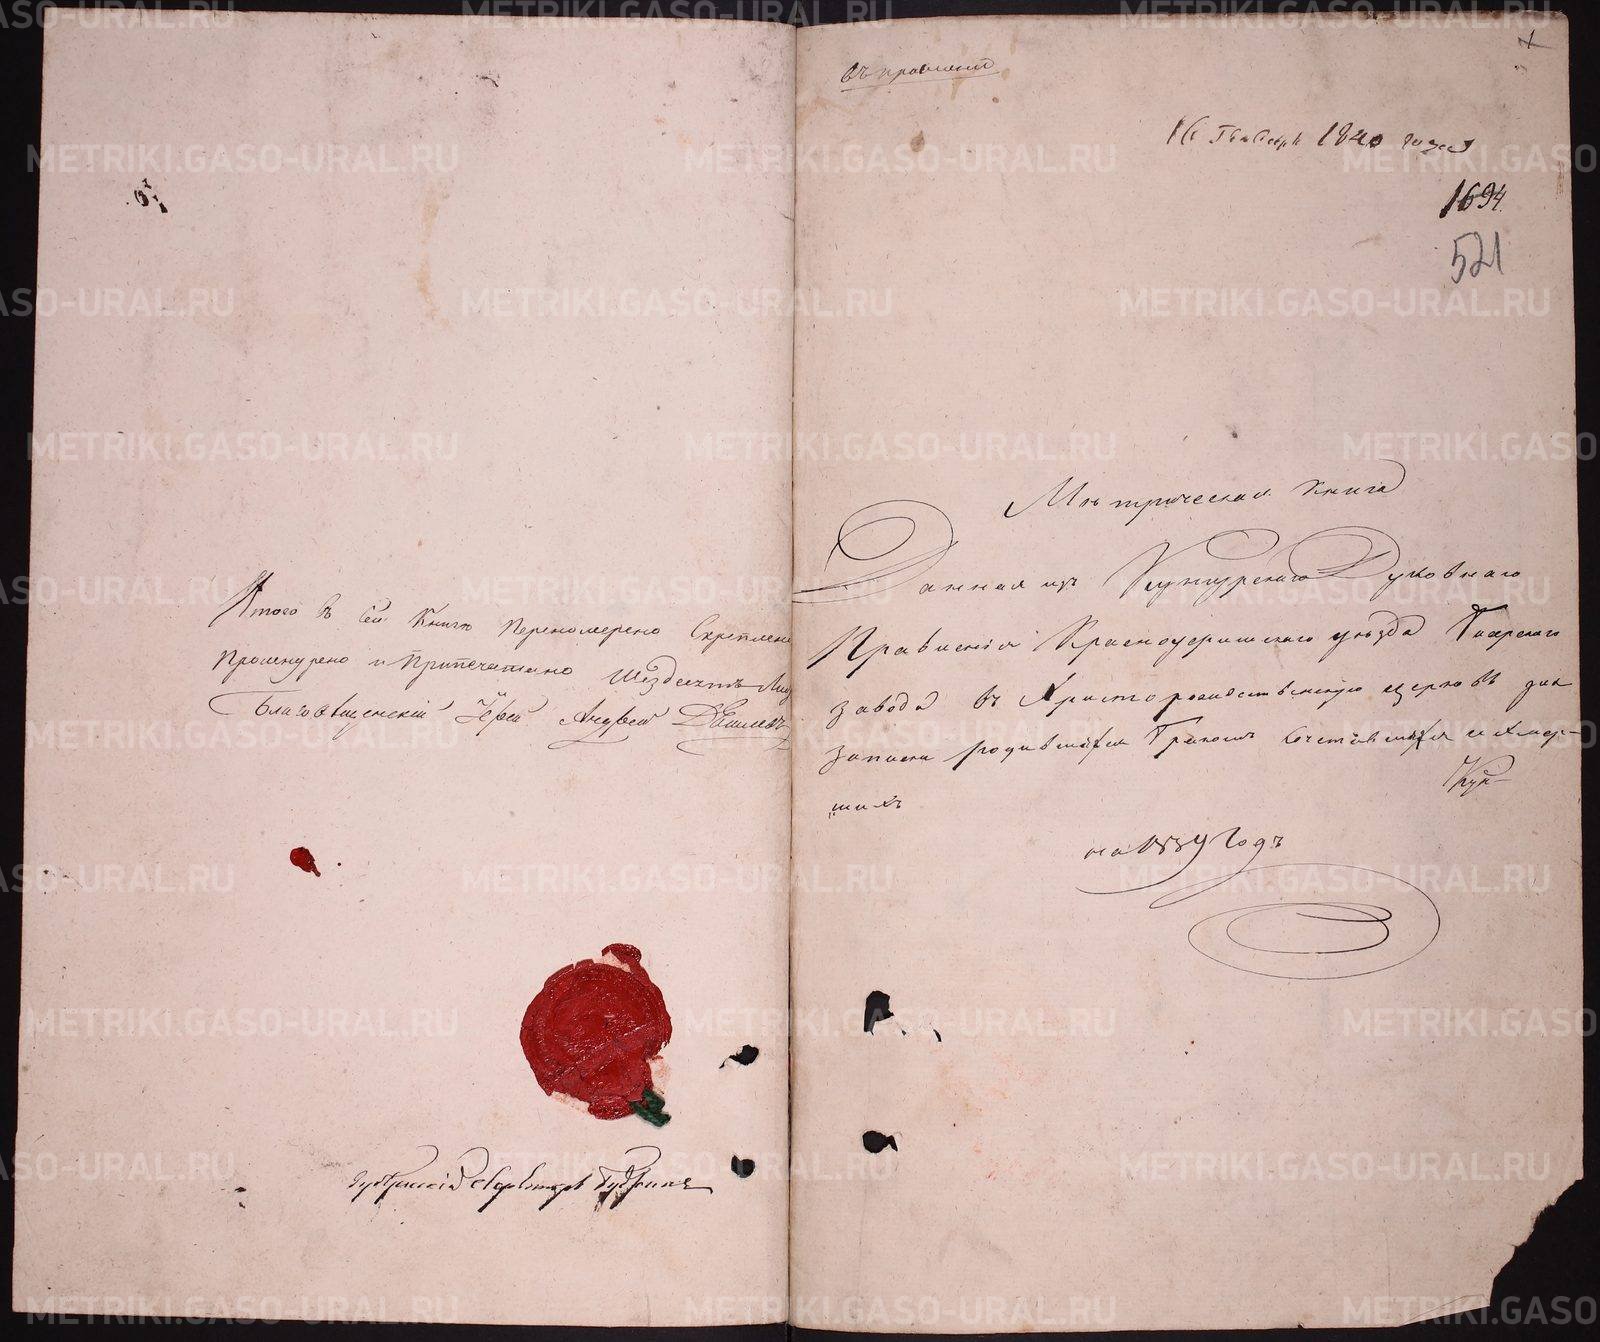 Итого въ сей Книгѣ Перенумерено Скрѣплено
Прошнурено и Припечатано Шездесятъ
Благовѣщенскій Іерей Андрей
Губернскій Секретарь
въ правленіе
16 Генваря 1840 года
1694
521
Метрическая Книга
Данная изъ Кунгурскаго Духовнаго
Правленія Красноуфимскаго уѣзда
завода въ Христорождественскую церковь для
записи родившихся Бракомъ сочетавшихся и умер-
шихъ
на 1839 Годъ
METRIKI.GASO-URAL.RU